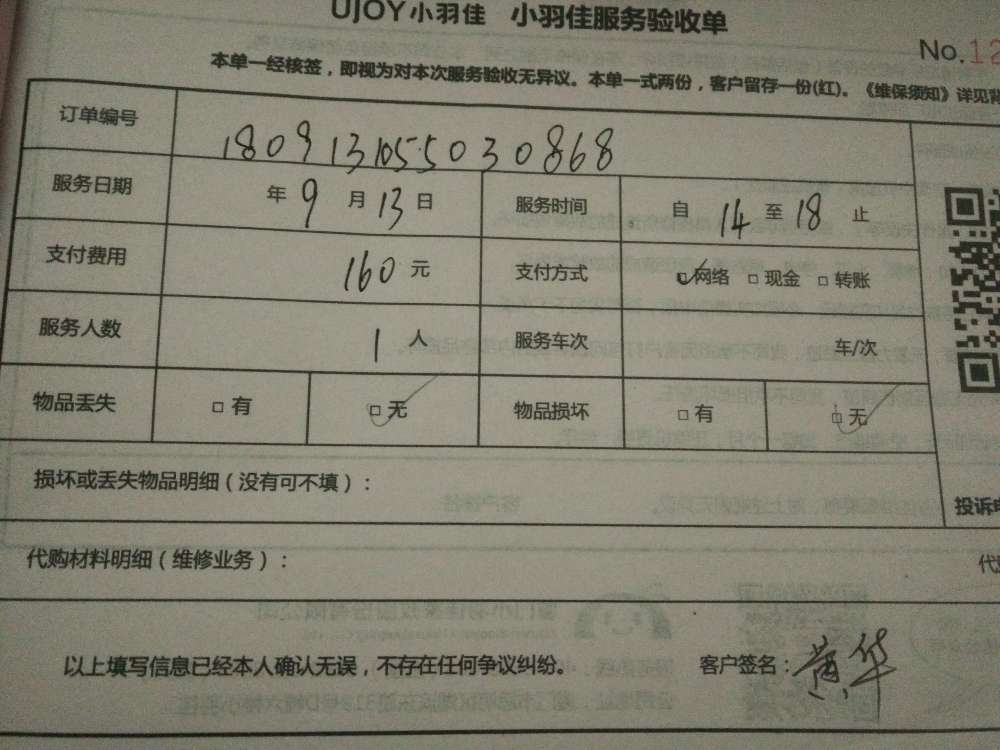 UJOY小羽佳 小羽佳服务验收单
No.12
本单一经核签，即视为对本次服务验收无异议。本单一式两份，客户留存一份(红)。《维保须知》详见背
订单编号 1809131055030868
服务日期 年 9 月 13 日 服务时间 自 14 至 18 止
支付费用 160 元 支付方式 ☑网络 □现金 □转账
服务人数 1 人 服务车次 车/次
物品丢失 □有 ☑无 物品损坏 □有 ☑无
损坏或丢失物品明细（没有可不填）：
投诉电
代购材料明细（维修业务）：
代购
以上填写信息已经本人确认无误，不存在任何争议纠纷。 客户签名：黄华